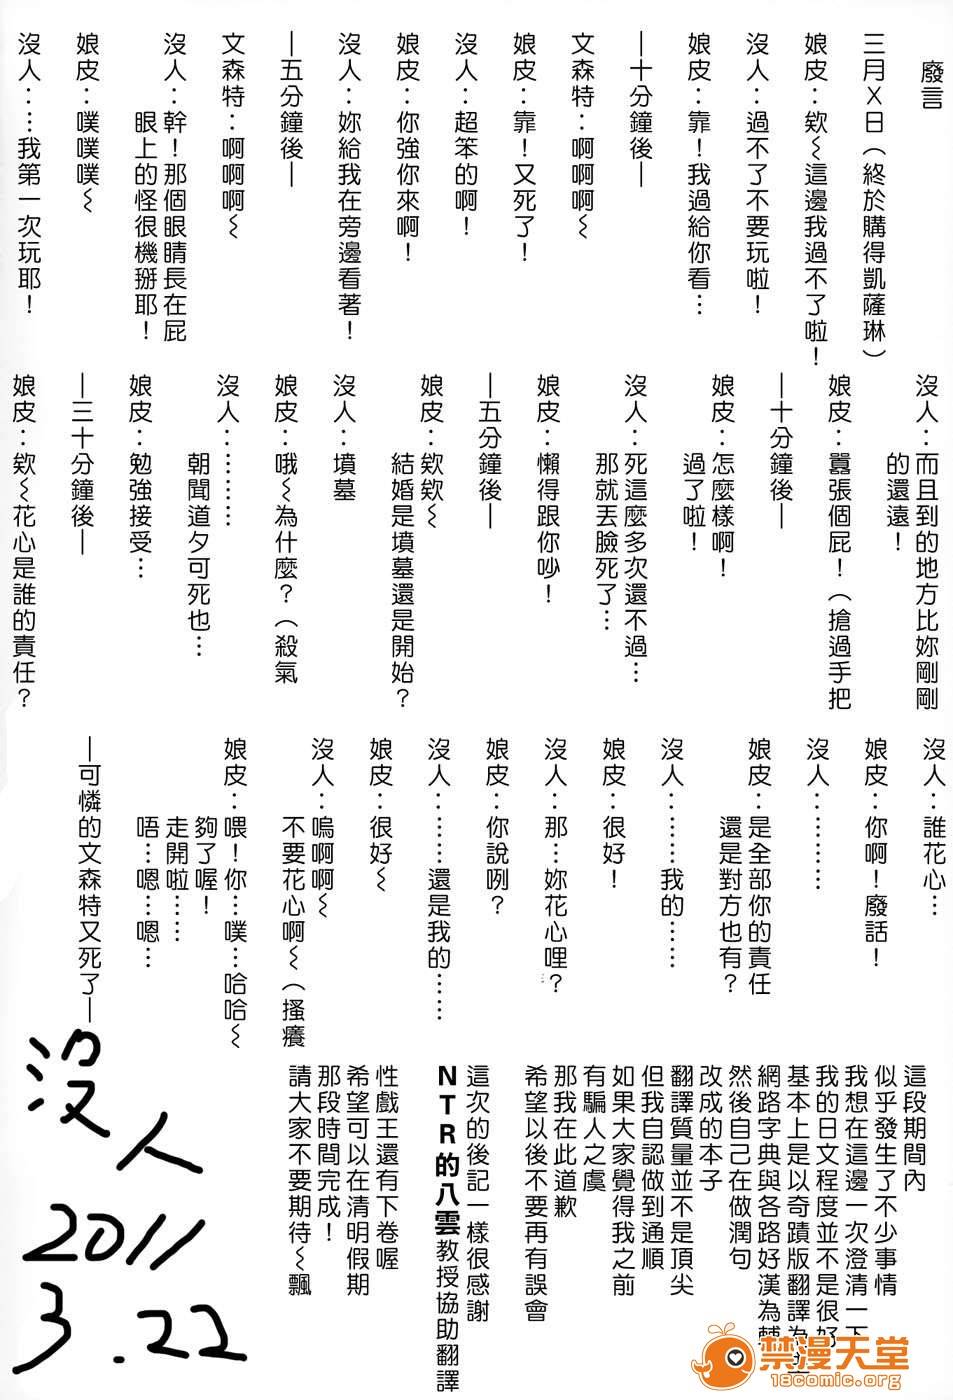 廢言
三月X日（終於購得凱薩琳）
娘皮：欸～這邊我過不了啦！
沒人：過不了不要玩啦！
娘皮：靠！我過給你看…
—十分鐘後—
文森特：啊啊啊～
娘皮：靠！又死了！
沒人：超笨的啊！
娘皮：你強你來啊！
沒人：妳給我在旁邊看著！
—五分鐘後—
文森特：啊啊啊～
沒人：幹！那個眼睛長在屁
眼上的怪很機掰耶！
娘皮：噗噗噗～
沒人：…我第一次玩耶！
沒人：而且到的地方比妳剛剛
的還遠！
娘皮：囂張個屁！（搶過手把
—十分鐘後—
娘皮：怎麼樣啊！
過了啦！
沒人：死這麼多次還不過…
那就丟臉死了…
娘皮：懶得跟你吵！
—五分鐘後—
娘皮：欸欸～
結婚是墳墓還是開始？
沒人：墳墓
娘皮：哦～為什麼？（殺氣
沒人：…………
朝聞道夕可死也…
娘皮：勉強接受…
—三十分鐘後—
娘皮：欸～花心是誰的責任？
沒人：誰花心…
娘皮：你啊！廢話！
沒人：…………
娘皮：是全部你的責任
還是對方也有？
沒人：………我的……
娘皮：很好！
沒人：那…妳花心哩？
娘皮：你說咧？
沒人：………還是我的……
娘皮：很好～
沒人：嗚啊啊～
不要花心啊～（搔癢
娘皮：喂！你…噗…哈哈～
夠了喔！
走開啦……
唔…嗯…嗯…
—可憐的文森特又死了—
這段期間內
似乎發生了不少事情
我想在這邊一次澄清一下
我的日文程度並不是很好
基本上是以奇蹟版翻譯為
網路字典與各路好漢為輔
然後自己在做潤句
改成的本子
翻譯質量並不是頂尖
但我自認做到通順
如果大家覺得我之前
有騙人之虞
那我在此道歉
希望以後不要再有誤會
這次的後記一樣很感謝
NTR的八雲教授協助翻譯
性戲王還有下卷喔
希望可以在清明假期
那段時間完成！
請大家不要期待～飄
沒人
2011
3.22
禁漫天堂
18comic.org